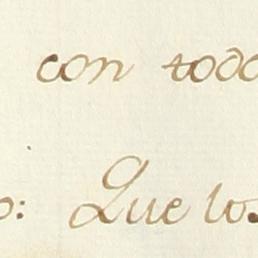 con todo
o: Que los